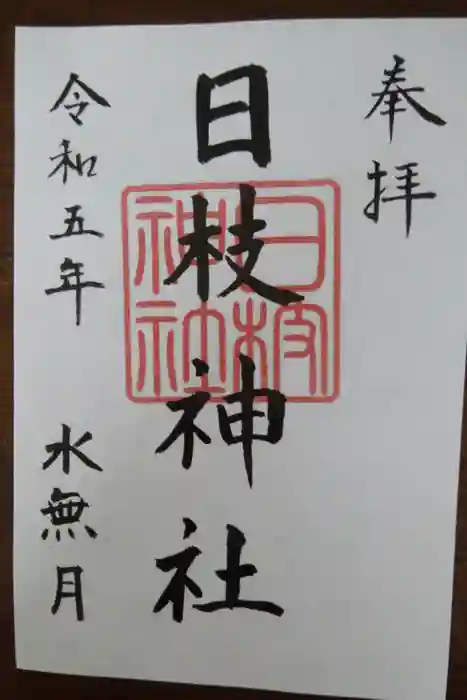 奉拝
日枝神社
日枝
神社
令和五年 水無月